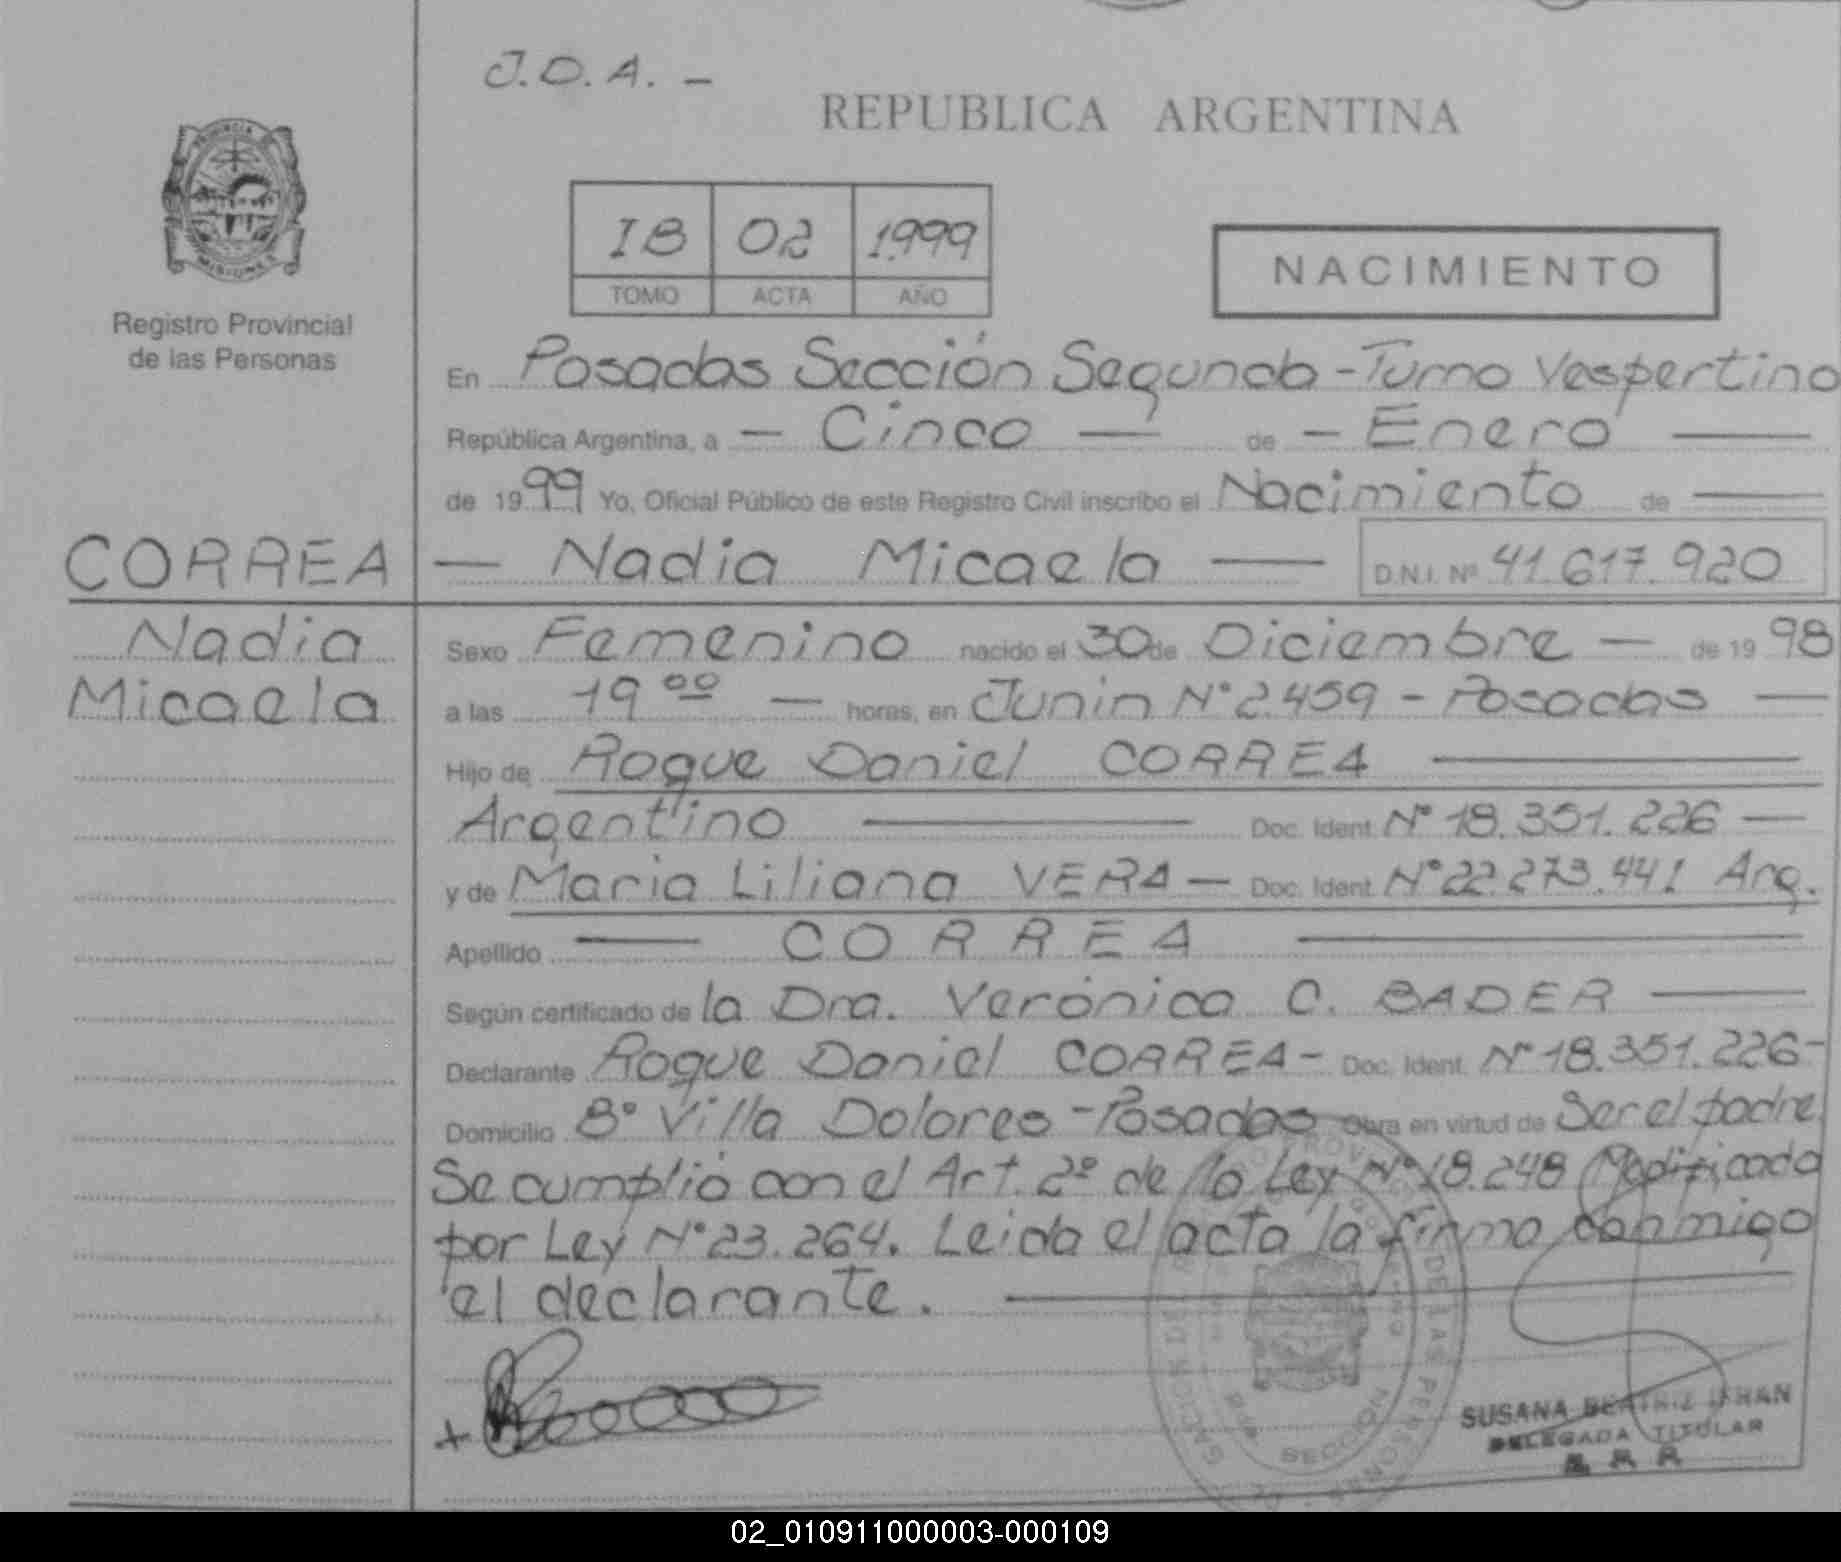 J.D.A. –
REPUBLICA ARGENTINA
PROVINCIA
MISIONES
Registro Provincial
de las Personas
IB 02 1.999
TOMO ACTA AÑO
NACIMIENTO
En Posadas Sección Segunda - Turno Vespertino
República Argentina, a — Cinco — de — Enero —
de 1999 Yo, Oficial Público de este Registro Civil inscribo el Nacimiento de —
CORREA — Nadia Micaela — D.N.I. Nº 41.617.920
Nadia
Micaela
Sexo Femenino nacido el 30 de Diciembre — de 1998
a las 19 ºº — horas, en Junin Nº 2.459 - Posadas —
Hijo de Roque Daniel CORREA —
Argentino — Doc. Ident. Nº 18.351.226 —
y de Maria Liliana VERA — Doc. Ident. Nº 22.273.441 Arg.
Apellido — CORREA —
Según certificado de la Dra. Verónica C. BADER —
Declarante Roque Daniel CORREA - Doc. Ident. Nº 18.351.226 -
Domicilio Bº Villa Dolores - Posadas Obra en virtud de Ser el padre
Se cumplió con el Art. 2º de la Ley Nº 18.248 Modificada
por Ley Nº 23.264. Leida el acta la firma conmigo
el declarante. —
SUSANA BEATRIZ
DELEGADA TITULAR
02_010911000003-000109